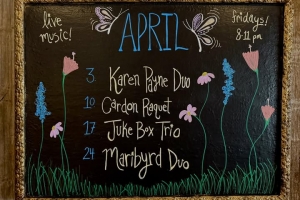 live
music!
APRIL
fridays!
8-11 pm
3 Karen Payne Duo
10 Cardon Raquet
17 Juke Box Trio
24 Maribyrd Duo